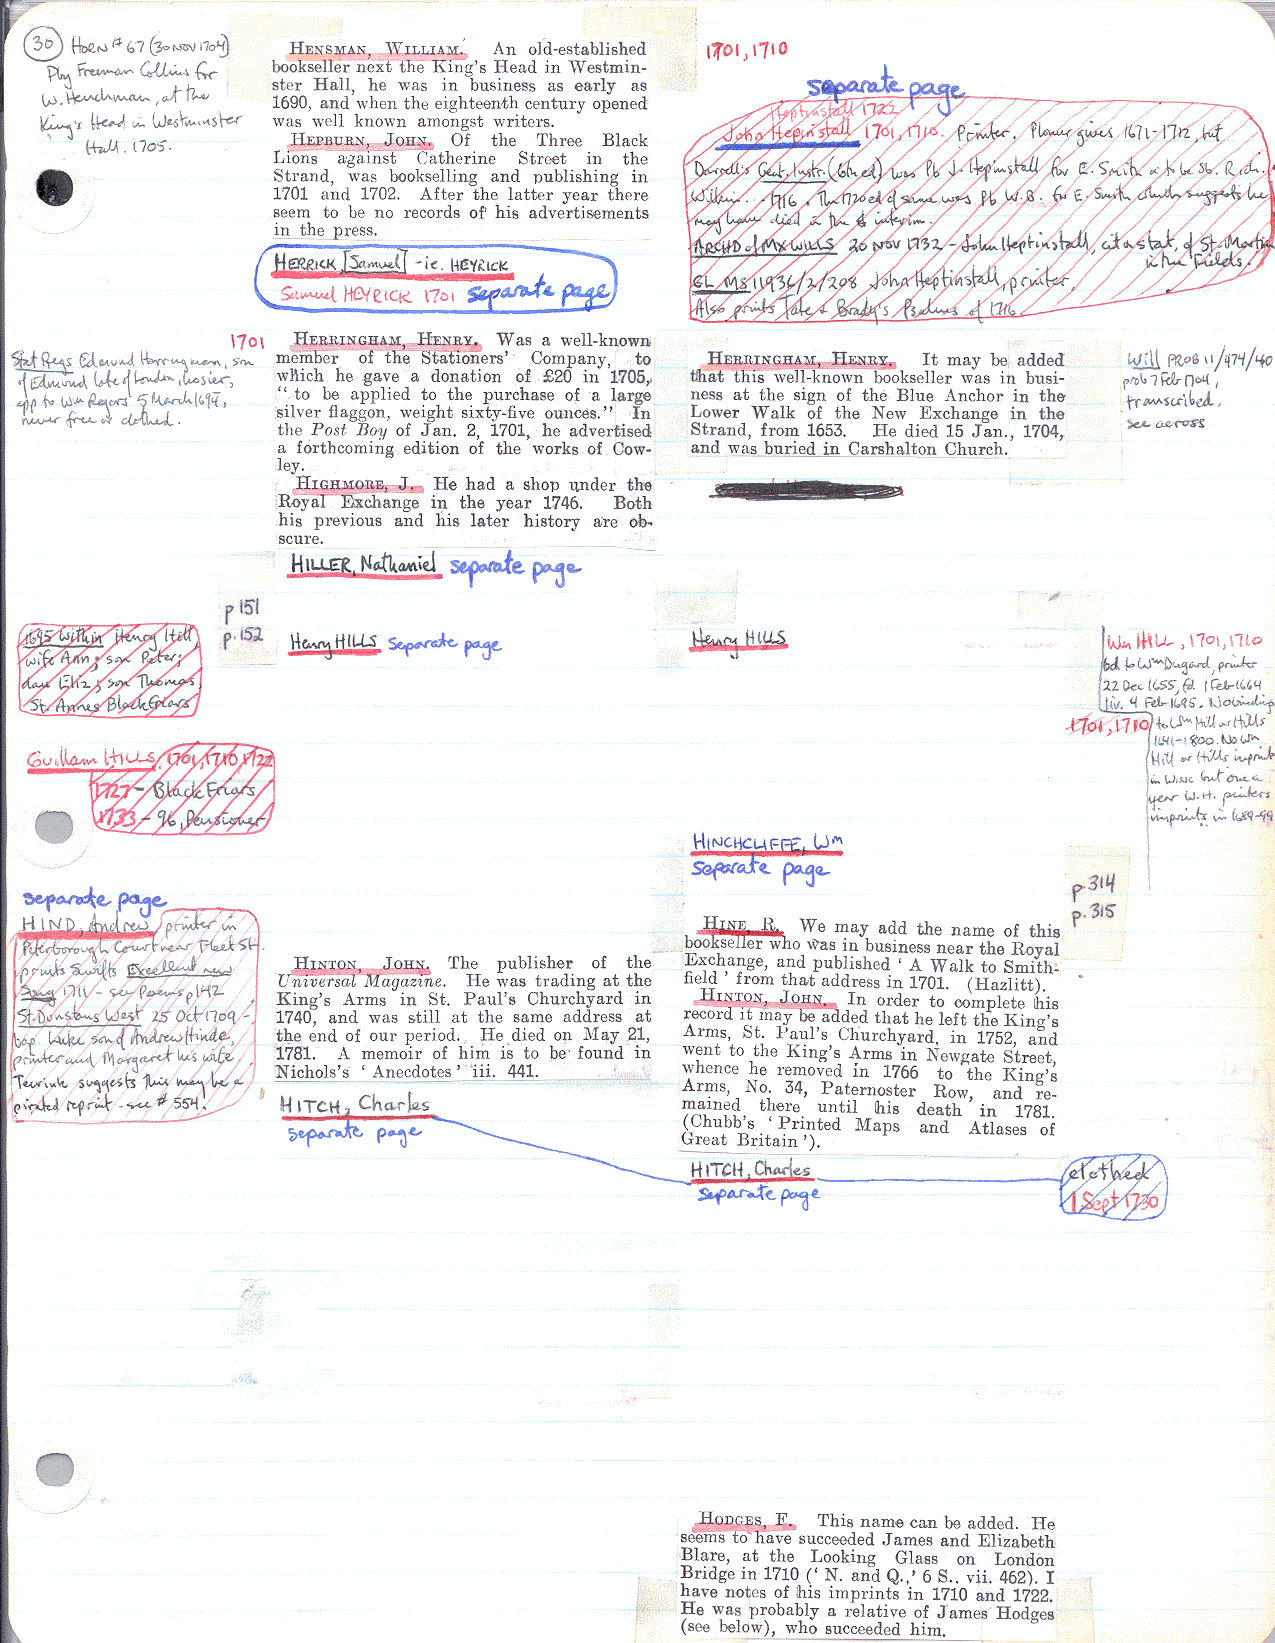 30 HORN # 67 (30 NOV 1704)
Ptg Freeman Collins for
W. Henchman, at the
King's Head in Westminster
Hall. 1705.
HENSMAN, WILLIAM. An old-established
bookseller next the King's Head in Westmin-
ster Hall, he was in business as early as
1690, and when the eighteenth century opened
was well known amongst writers.
HEPBURN, JOHN. Of the Three Black
Lions against Catherine Street in the
Strand, was bookselling and publishing in
1701 and 1702. After the latter year there
seem to be no records of his advertisements
in the press.
HERRICK [Samuel] - ie. HEYRICK
Samuel HEYRICK 1701 separate page
1701, 1710
separate page
Heptinstall 1722
John Hepinstall 1701, 1710. Printer. Plomer gives 1671-1712, but
Darrell's Gent. Instr. (6th ed) was Pb J. Hepinstall for E. Smith & to be sb. Rich.
Wilkin. 1716. The 1720 ed of same was Pb W.B. for E. Smith which suggests he
may have died in the interim.
ARCHD of MX WILLS 20 NOV 1732 - John Heptinstall, cit & stat, of St. Martin
in the Fields.
GL MS 11936/2/208 John Heptinstall, printer,
Also prints Tate & Brady's Psalms of 1716.
1701
Stat Regs Edmund Herringman, son
of Edmund late of London, hosier,
app to Wm Rogers 5 March 1694,
never free or clothed.
HERRINGHAM, HENRY. Was a well-known
member of the Stationers' Company, to
which he gave a donation of £20 in 1705,
“ to be applied to the purchase of a large
silver flaggon, weight sixty-five ounces.” In
the Post Boy of Jan. 2, 1701, he advertised
a forthcoming edition of the works of Cow-
ley.
HIGHMORE, J. He had a shop under the
Royal Exchange in the year 1746. Both
his previous and his later history are ob-
scure.
HILLER, Nathaniel separate page
HERRINGHAM, HENRY. It may be added
that this well-known bookseller was in busi-
ness at the sign of the Blue Anchor in the
Lower Walk of the New Exchange in the
Strand, from 1653. He died 15 Jan., 1704,
and was buried in Carshalton Church.
Will PROB 11/474/40
prob 7 Feb 1704,
transcribed.
see across
p 151
p. 152
1695 Within Henry Hill,
wife Ann; son Peter;
dau Eliz; son Thomas,
St. Annes Blackfriars
Henry HILLS separate page
Henry HILLS
Wm HILL, 1701, 1710
bd to Wm Dugard, printer
22 Dec 1655, fd 1 Feb 1664
liv. 4 Feb 1695. No binding
1701, 1710 to Wm Hill or Hills
1641-1800. No Wm
Hill or Hills imprint
in Wing but one a
year W.H. printers
imprints in 1689-99
Guillam HILLS, 1701, 1710, 1722
1727 - Black Friars
1733 - 96, Pensioner
HINCHCLIFFE, Wm
separate page
p. 314
p. 315
separate page
HIND, Andrew, printer in
Peterborough Court near Fleet St.
prints Swifts Excellent new
Song 1711 - see Poems p 142
St. Dunstans West 25 Oct 1709 -
bap. Luke son of Andrew Hinde,
printer and Margaret his wife.
Teerink suggests this may be a
pirated reprint - see # 554.
HINTON, JOHN. The publisher of the
Universal Magazine. He was trading at the
King's Arms in St. Paul's Churchyard in
1740, and was still at the same address at
the end of our period. He died on May 21,
1781. A memoir of him is to be found in
Nichols's ‘ Anecdotes ’ iii. 441.
HITCH, Charles
separate page
HINE, R. We may add the name of this
bookseller who was in business near the Royal
Exchange, and published ‘ A Walk to Smith-
field ’ from that address in 1701. (Hazlitt).
HINTON, JOHN. In order to complete his
record it may be added that he left the King's
Arms, St. Paul's Churchyard, in 1752, and
went to the King's Arms in Newgate Street,
whence he removed in 1766 to the King's
Arms, No. 34, Paternoster Row, and re-
mained there until his death in 1781.
(Chubb's ‘ Printed Maps and Atlases of
Great Britain ’).
HITCH, Charles
separate page
clothed
1 Sept 1730
HODGES, F. This name can be added. He
seems to have succeeded James and Elizabeth
Blare, at the Looking Glass on London
Bridge in 1710 (‘ N. and Q.,’ 6 S.. vii. 462). I
have notes of his imprints in 1710 and 1722.
He was probably a relative of James Hodges
(see below), who succeeded him.